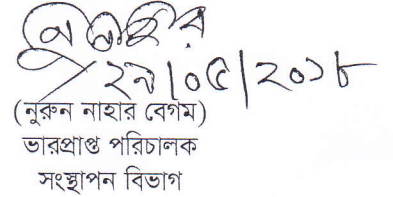 ২৯/০৫/২০১৮
(নুরুন নাহার বেগম)
ভারপ্রাপ্ত পরিচালক
সংস্থাপন বিভাগ